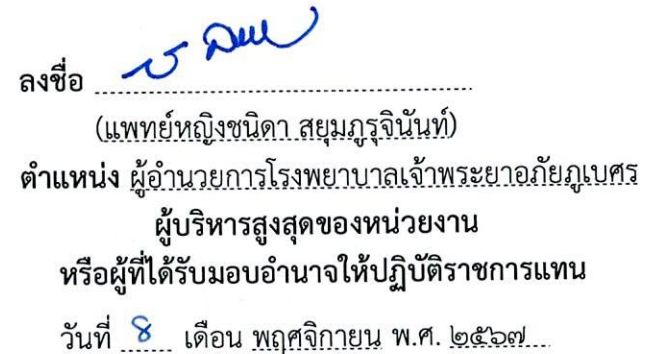 ลงชื่อ
(แพทย์หญิงชนิดา สยุมภูรุจินันท์)
ตำแหน่ง ผู้อำนวยการโรงพยาบาลเจ้าพระยาอภัยภูเบศร
ผู้บริหารสูงสุดของหน่วยงาน
หรือผู้ที่ได้รับมอบอำนาจให้ปฏิบัติราชการแทน
วันที่ ๘ เดือน พฤศจิกายน พ.ศ. ๒๕๖๗